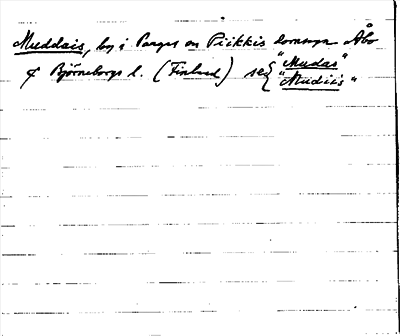 Muddais, by i Pargas o Piikkis domsaga Åbo "Mudas"
& Björneborgs l. (Finland) se { "Mudiis"